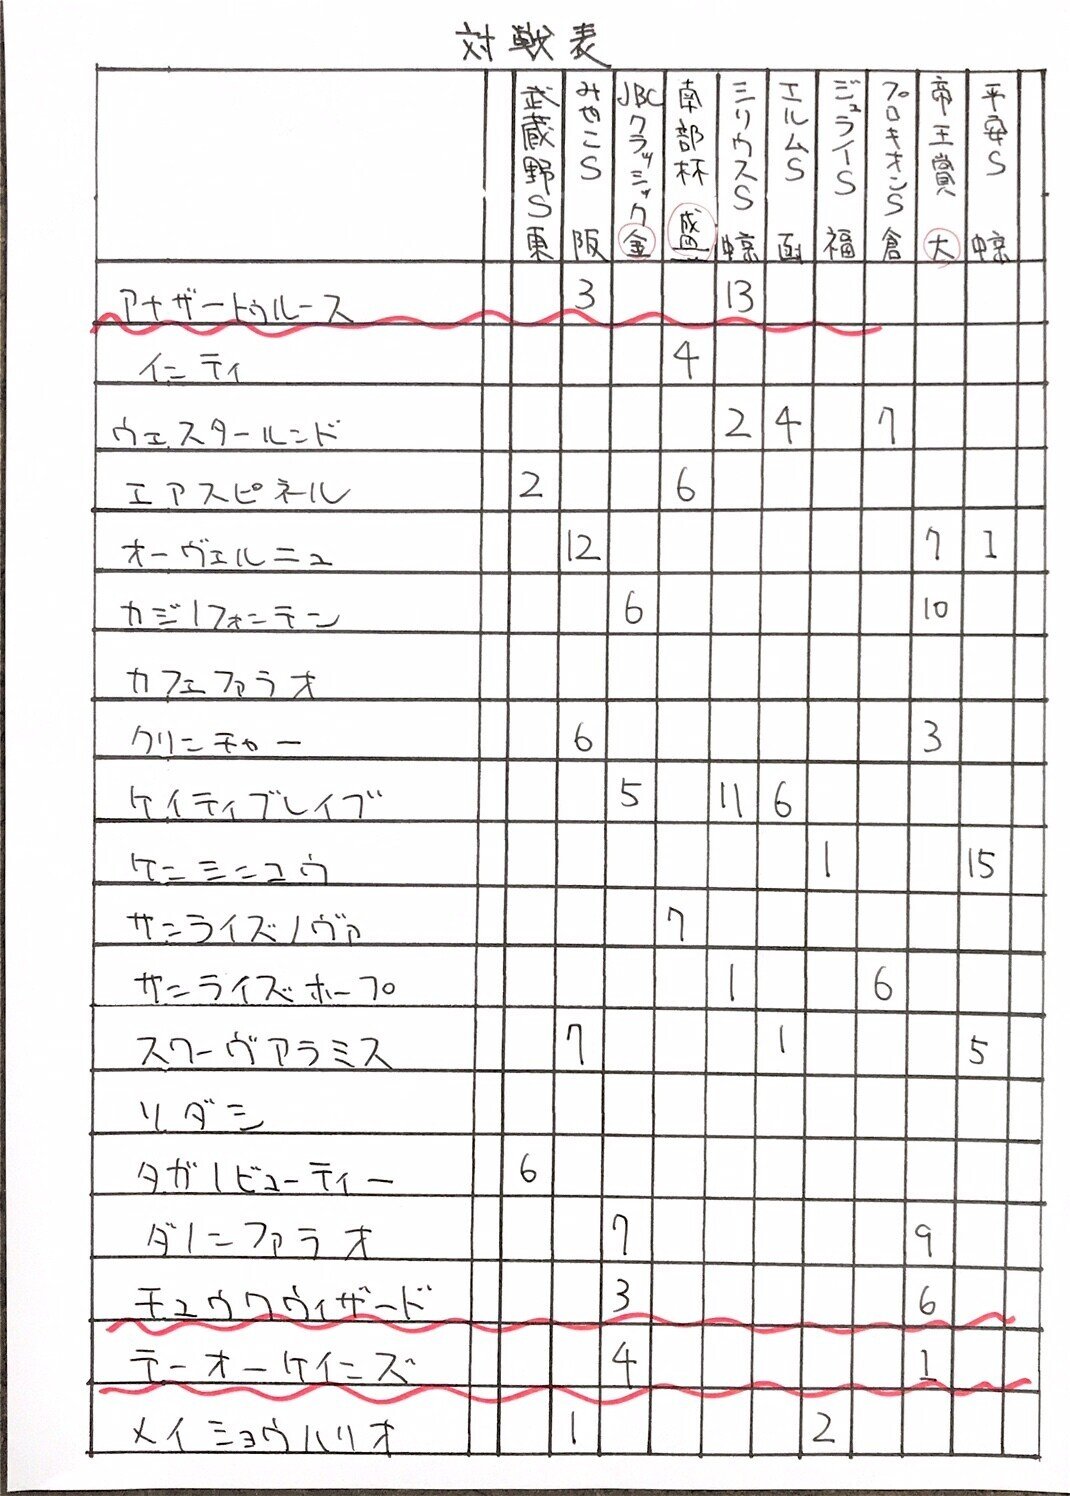 対戦表
武蔵野S 東
みやこS 阪
JBCクラッシック 金
南部杯 盛
シリウスS 中京
エルムS 函
ジュライS 福
プロキオンS 倉
帝王賞 大
平安S 中京
アナザートゥルース 3 13
インティ 4
ウェスタールンド 2 4 7
エアスピネル 2 6
オーヴェルニュ 12 7 1
カジノフォンテン 6 10
カフェファラオ
クリンチャー 6 3
ケイティブレイブ 5 11 6
ケンシンコウ 1 15
サンライズノヴァ 7
サンライズホープ 1 6
スワーヴアラミス 7 1 5
ソリダシ
タガノビューティー 6
ダノンファラオ 7 9
チュウワウィザード 3 6
テーオーケインズ 4 1
メイショウハリオ 1 2